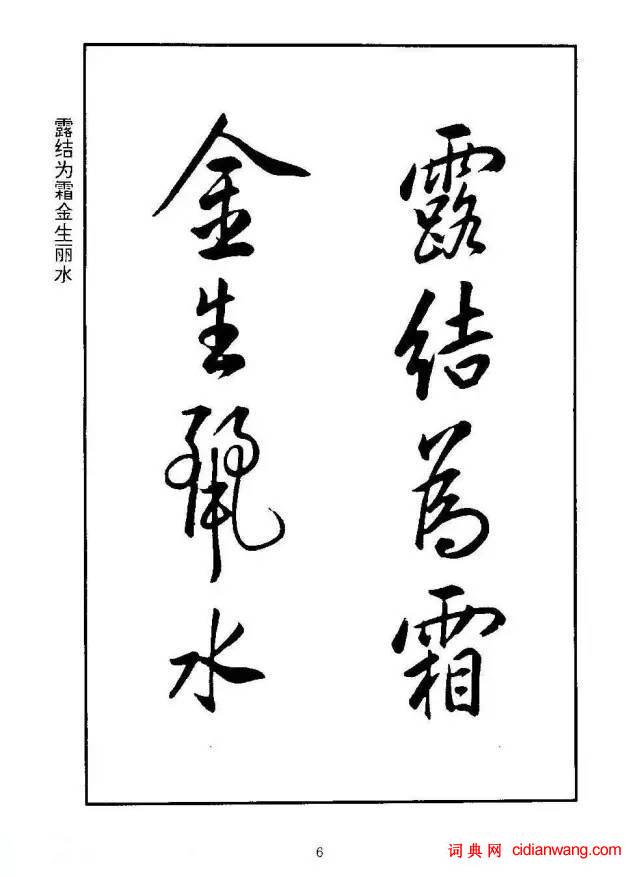 露结为霜金生丽水
露结為霜
金生麗水
6
词典网 cidianwang.com